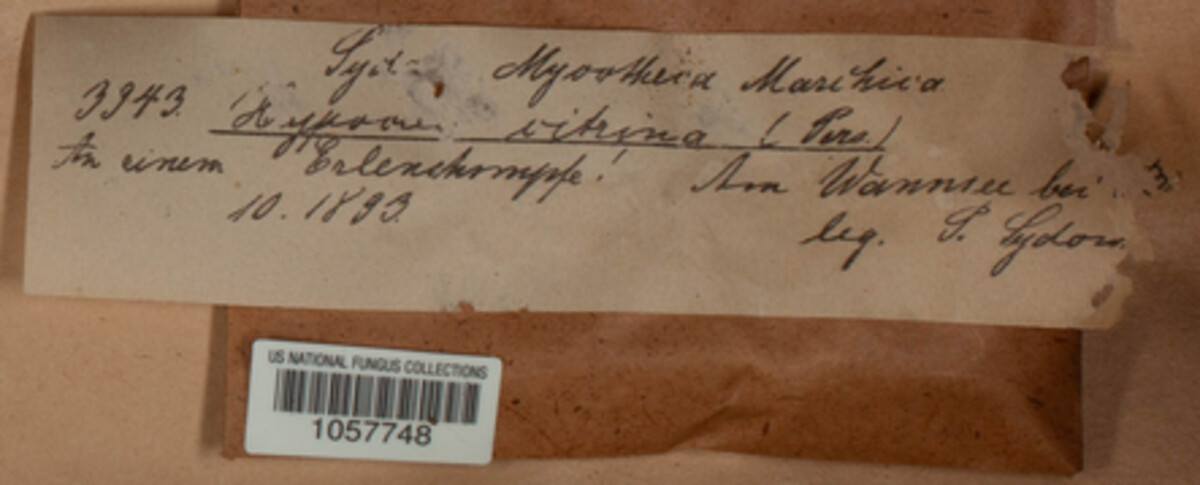 Syd. Mycotheca Marchica
3943. Hypocrea citrina (Pers.)
An einem Erlenstumpfe! Am Wannsee bei
10. 1893. leg. P. Sydow.
US NATIONAL FUNGUS COLLECTIONS
1057748